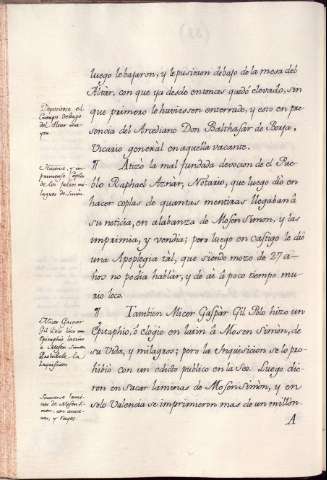 luego le bajaron, y le pusieron debajo de la mesa del
Altar, con que ya desde entonces quedó elevado, sin
que primero le huviessen enterrado, y esto en pre-
sencia del Arcediano Don Balthasar de Borja,
Vicario general en aquella vacante.
¶ Atizó la mal fundada devocion de el Pue-
blo Raphael Aznar, Notario, que luego dió en
hacer coplas de quantas mentiras llegaban á
su noticia, en alabanza de Mosen Simon, y las
imprimia, y vendia; pero luego en castigo le dió
una Apoplegia tal, que siendo mozo de 27 a-
ños no podia hablar, y de ai á poco tiempo mu-
rio loco.
¶ Tambien Micer Gaspar Gil Polo hizo un
Epitaphio, ó elogio en latin á Mosen Simon, de
su Vida, y milagros; pero la Inquisicion se lo pro-
hibió con un edicto publico en la Seo. Luego die-
ron en sacar laminas de Mosen Simon, y en
solo Valencia se imprimieron mas de un millon.
A
Deposítase el
Cuerpo debajo
del Altar
de los falsos mi-
lagros de Simon
Micer Gaspar
Gil Polo hizo un
Epitaphio latino
á Mosen Simon
Inquisicion
de Mosen Si-
mon